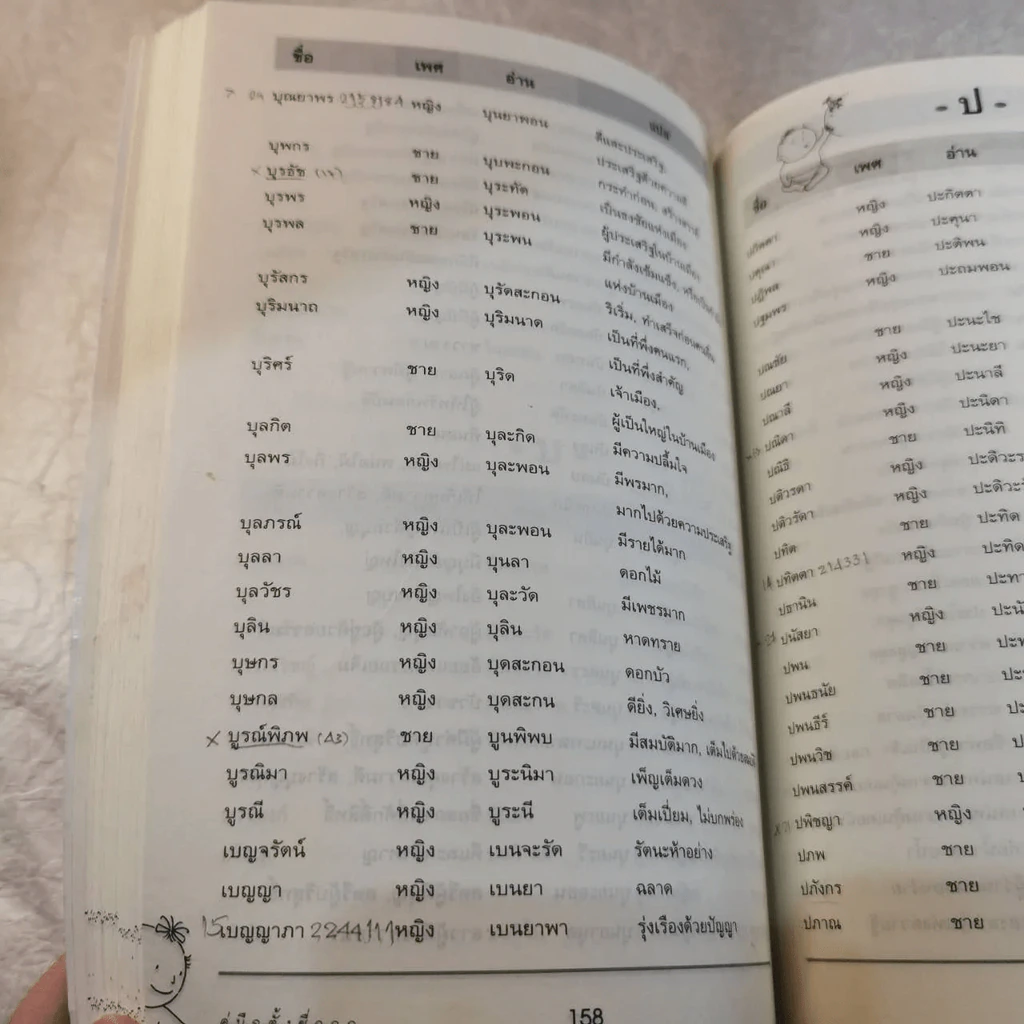 ชื่อ เพศ อ่าน แปล
บุณยาพร หญิง บุนยาพอน ดีและประเสริฐ,
ประเสริฐด้วยความดี
บุพกร ชาย บุบพะกอน กระทำก่อน,
× บุรฉัช ชาย บุระทัด เป็นธงชัยแห่งเมือง
บุรพร หญิง บุระพอน ผู้ประเสริฐในบ้านเมือง
บุรพล ชาย บุระพน มีกำลังเข้มแข็ง,
แห่งบ้านเมือง
บุรัสกร หญิง บุรัดสะกอน ริเริ่ม, ทำเสร็จก่อนคนอื่น
บุริมนาถ หญิง บุริมนาด เป็นที่พึ่งคนแรก,
เป็นที่พึ่งสำคัญ
บุริศร์ ชาย บุริด เจ้าเมือง,
ผู้เป็นใหญ่ในบ้านเมือง
บุลกิต ชาย บุละกิด มีความปลื้มใจ
บุลพร หญิง บุละพอน มีพรมาก,
มากไปด้วยความประเสริฐ
บุลภรณ์ หญิง บุละพอน มีรายได้มาก
บุลลา หญิง บุนลา ดอกไม้
บุลวัชร หญิง บุละวัด มีเพชรมาก
บุลิน หญิง บุลิน หาดทราย
บุษกร หญิง บุดสะกอน ดอกบัว
บุษกล หญิง บุดสะกน ดียิ่ง, วิเศษยิ่ง
× บูรณ์พิภพ (43) ชาย บูนพิพบ มีสมบัติมาก,
บูรณิมา หญิง บูระนิมา เพ็ญเต็มดวง
บูรณี หญิง บูระนี เต็มเปี่ยม, ไม่บกพร่อง
เบญจรัตน์ หญิง เบนจะรัด รัตนะห้าอย่าง
เบญญา หญิง เบนยา ฉลาด
15 เบญญาภา 2244111 หญิง เบนยาพา รุ่งเรืองด้วยปัญญา
158
- ป -
ชื่อ เพศ อ่าน
ปกิตตา หญิง ปะกิตตา
ปคุนา หญิง ปะคุนา
ปฏิพล ชาย ปะติพน
ปฐมพร หญิง ปะถมพอน
ปณชัย ชาย ปะนะไช
ปณยา หญิง ปะนะยา
ปณาลี หญิง ปะนาลี
ปณิดา หญิง ปะนิดา
ปณิธิ ชาย ปะนิทิ
ปติวรดา หญิง
ปติวรัดา หญิง
ปทิต ชาย ปะทิด
ปทิตตา 214331 หญิง
ปธานิน ชาย
ปนัสยา หญิง
ปพน ชาย
ปพนธนัย ชาย
ปพนธีร์ ชาย
ปพนวิช ชาย
ปพนสรรค์ ชาย
ปพิชญา หญิง
ปภพ ชาย
ปภังกร ชาย
ปภาณ ชาย